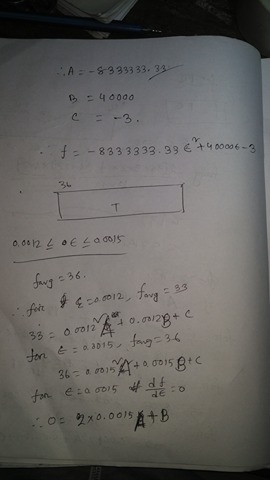 ∴ A = -8333333.33
B = 40000
C = -3.
∴ f = -8333333.33 ε² + 40000ε - 3
36
T
0.0012 ≤ ε ≤ 0.0015
favg = 36.
∴ for ε = 0.0012, favg = 33
33 = 0.0012²A + 0.0012B + C
for ε = 0.0015, favg = 36
36 = 0.0015²A + 0.0015B + C
for ε = 0.0015 df/dε = 0
∴ 0 = 2 × 0.0015 A + B